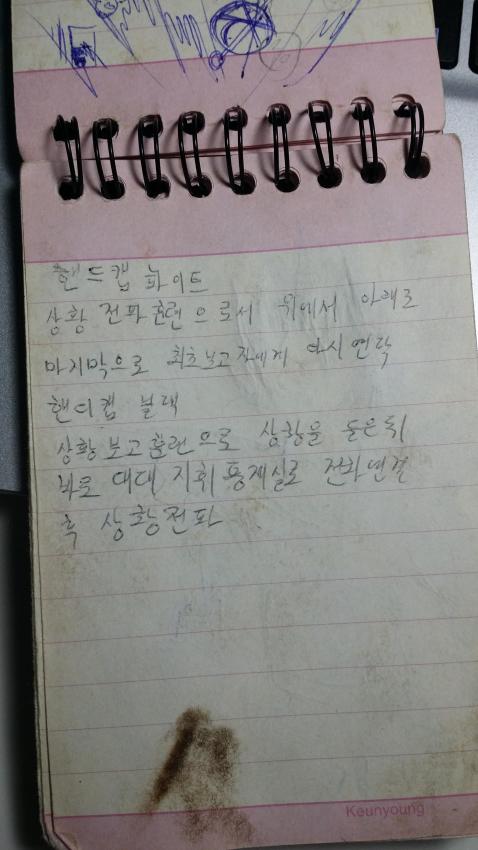 핸드캡 화이트
상황 전파 훈련으로서 위에서 아래로
마지막으로 최초보고자에게 다시 연락
핸디캡 블랙
상황보고훈련으로 상황을 들은뒤
바로 대대 지휘통제실로 전화연결
후 상황전파
Keunyoung